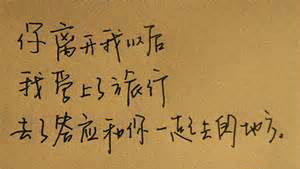 你离开我以后
我爱上了旅行
去了答应和你一起去的地方。